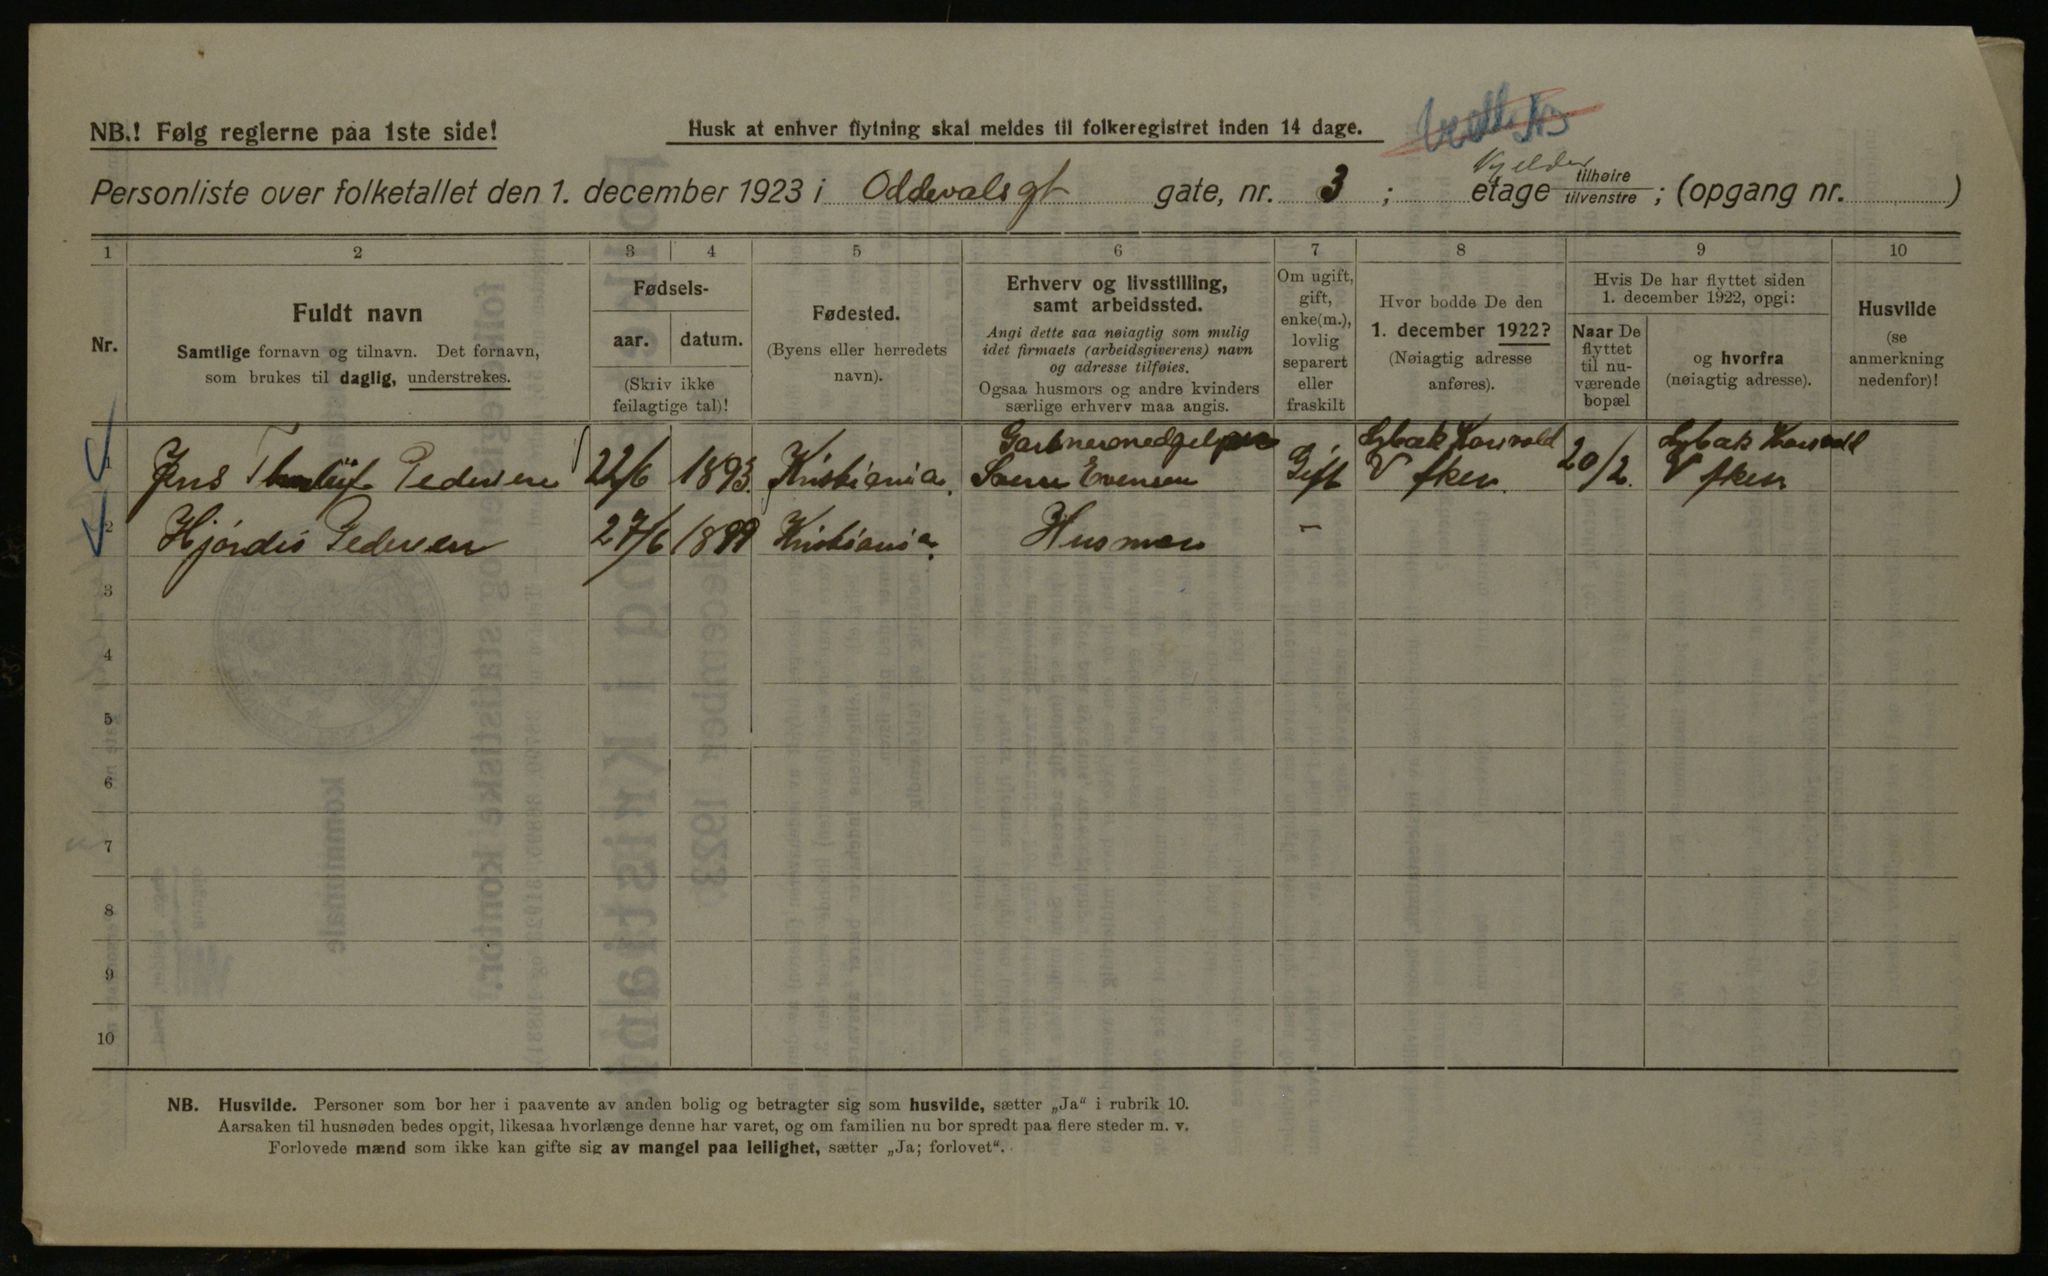 NB.! Følg reglerne paa 1ste side!
Husk at enhver flytning skal meldes til folkeregistret inden 14 dage.
Personliste over folketallet den 1. december 1923 i Oddevalsgt gate, nr. 3; Kjelder etage tilhøire / tilvenstre; (opgang nr. )
1 2 3 4 5 6 7 8 9 10
Nr.
Fuldt navn
Samtlige fornavn og tilnavn. Det fornavn,
som brukes til daglig, understrekes.
Fødsels-
aar. datum.
(Skriv ikke
feilagtige tal)!
Fødested.
(Byens eller herredets
navn).
Erhverv og livsstilling,
samt arbeidssted.
Angi dette saa nøiagtig som mulig
idet firmaets (arbeidsgiverens) navn
og adresse tilføies.
Ogsaa husmors og andre kvinders
særlige erhverv maa angis.
Om ugift,
gift,
enke(m.),
lovlig
separert
eller
fraskilt
Hvor bodde De den
1. december 1922?
(Nøiagtig adresse
anføres).
Hvis De har flyttet siden
1. december 1922, opgi:
Naar De
flyttet
til nu-
værende
bopæl
og hvorfra
(nøiagtig adresse).
Husvilde
(se
anmerkning
nedenfor)!
1 Jens Pedersen 22/6 1893. Kristiania. Evensen Gift V Aker. 20/2. V Aker
2 Hjørdis Pedersen 27/6 1899 Kristiania. Husmor –
3
4
5
6
7
8
9
10
NB. Husvilde. Personer som bor her i paavente av anden bolig og betragter sig som husvilde, sætter „Ja“ i rubrik 10.
Aarsaken til husnøden bedes opgit, likesaa hvorlænge denne har varet, og om familien nu bor spredt paa flere steder m. v.
Forlovede mænd som ikke kan gifte sig av mangel paa leilighet, sætter „Ja; forlovet“.